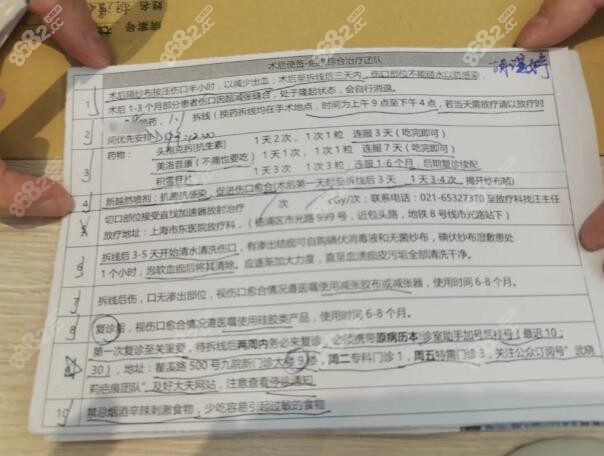 病案号
姓名
术后便签 综合治疗团队
1 术后隔纱布按压伤口半小时，以减少出血；术后至拆线后三天内，伤口部位不能碰水以防感染。
术后 1-3 个月部分患者伤口因超减张缝合，处于隆起状态，会自行消退。
2 换药，拆线（换药拆线均在手术地点，时间为上午 9 点至下午 4 点，若当天需放疗请以放疗时
间优先安排）
3 药物：头孢克肟[抗生素] 1 天 2 次，1 次 1 粒 连服 3 天（吃完即可）
美洛昔康（不痛也要吃） 1 天 1 次，1 次 1 粒 连服 7 天（吃完即可）
积雪苷片 1 天 3 次 1 次 3 粒，连服 1-6 个月，后期复诊续配
4 新越然喷剂：抗菌抗感染，促进伤口愈合(术后第一天起至拆线后 3 天 1 天 3-4 次，揭开纱布喷)
5 切口部位接受直线加速器放射治疗 次 cGy/次 联系电话：021-65327370 至放疗科找汪主任
放疗地址：上海市东医院放疗科，（杨浦区市光路 999 号，近包头路，地铁 8 号线市光路站下）
6 拆线后 3-5 天开始清水清洗伤口，有渗出结痂可自购碘伏消毒液和无菌纱布，碘伏纱布湿敷患处
1 个小时，泡软血痂后将其清除。应逐渐加大力度，直至血渍痂皮污垢全部清洗干净。
7 拆线后伤，口无渗出部位，视伤口愈合情况遵医嘱使用减张胶布或减张器，使用时间 6-8 个月。
8 复诊后，视伤口愈合情况遵医嘱使用硅胶类产品，使用时间 6-8 个月。
第一次复诊至关重要，待拆线后两周内务必来复诊，必须携带原病历本，诊室助手加号后挂号（最迟 10：
30），地址：瞿溪路 500 号九院新门诊大楼 9 楼，周二专科门诊 1，周五特需门诊 3，关注公众订阅号"武晓
莉疤痕团队"及好大夫网站，注意查看停诊通知
10 禁忌烟酒辛辣刺激食物，少吃容易引起过敏的食物
8682.cc